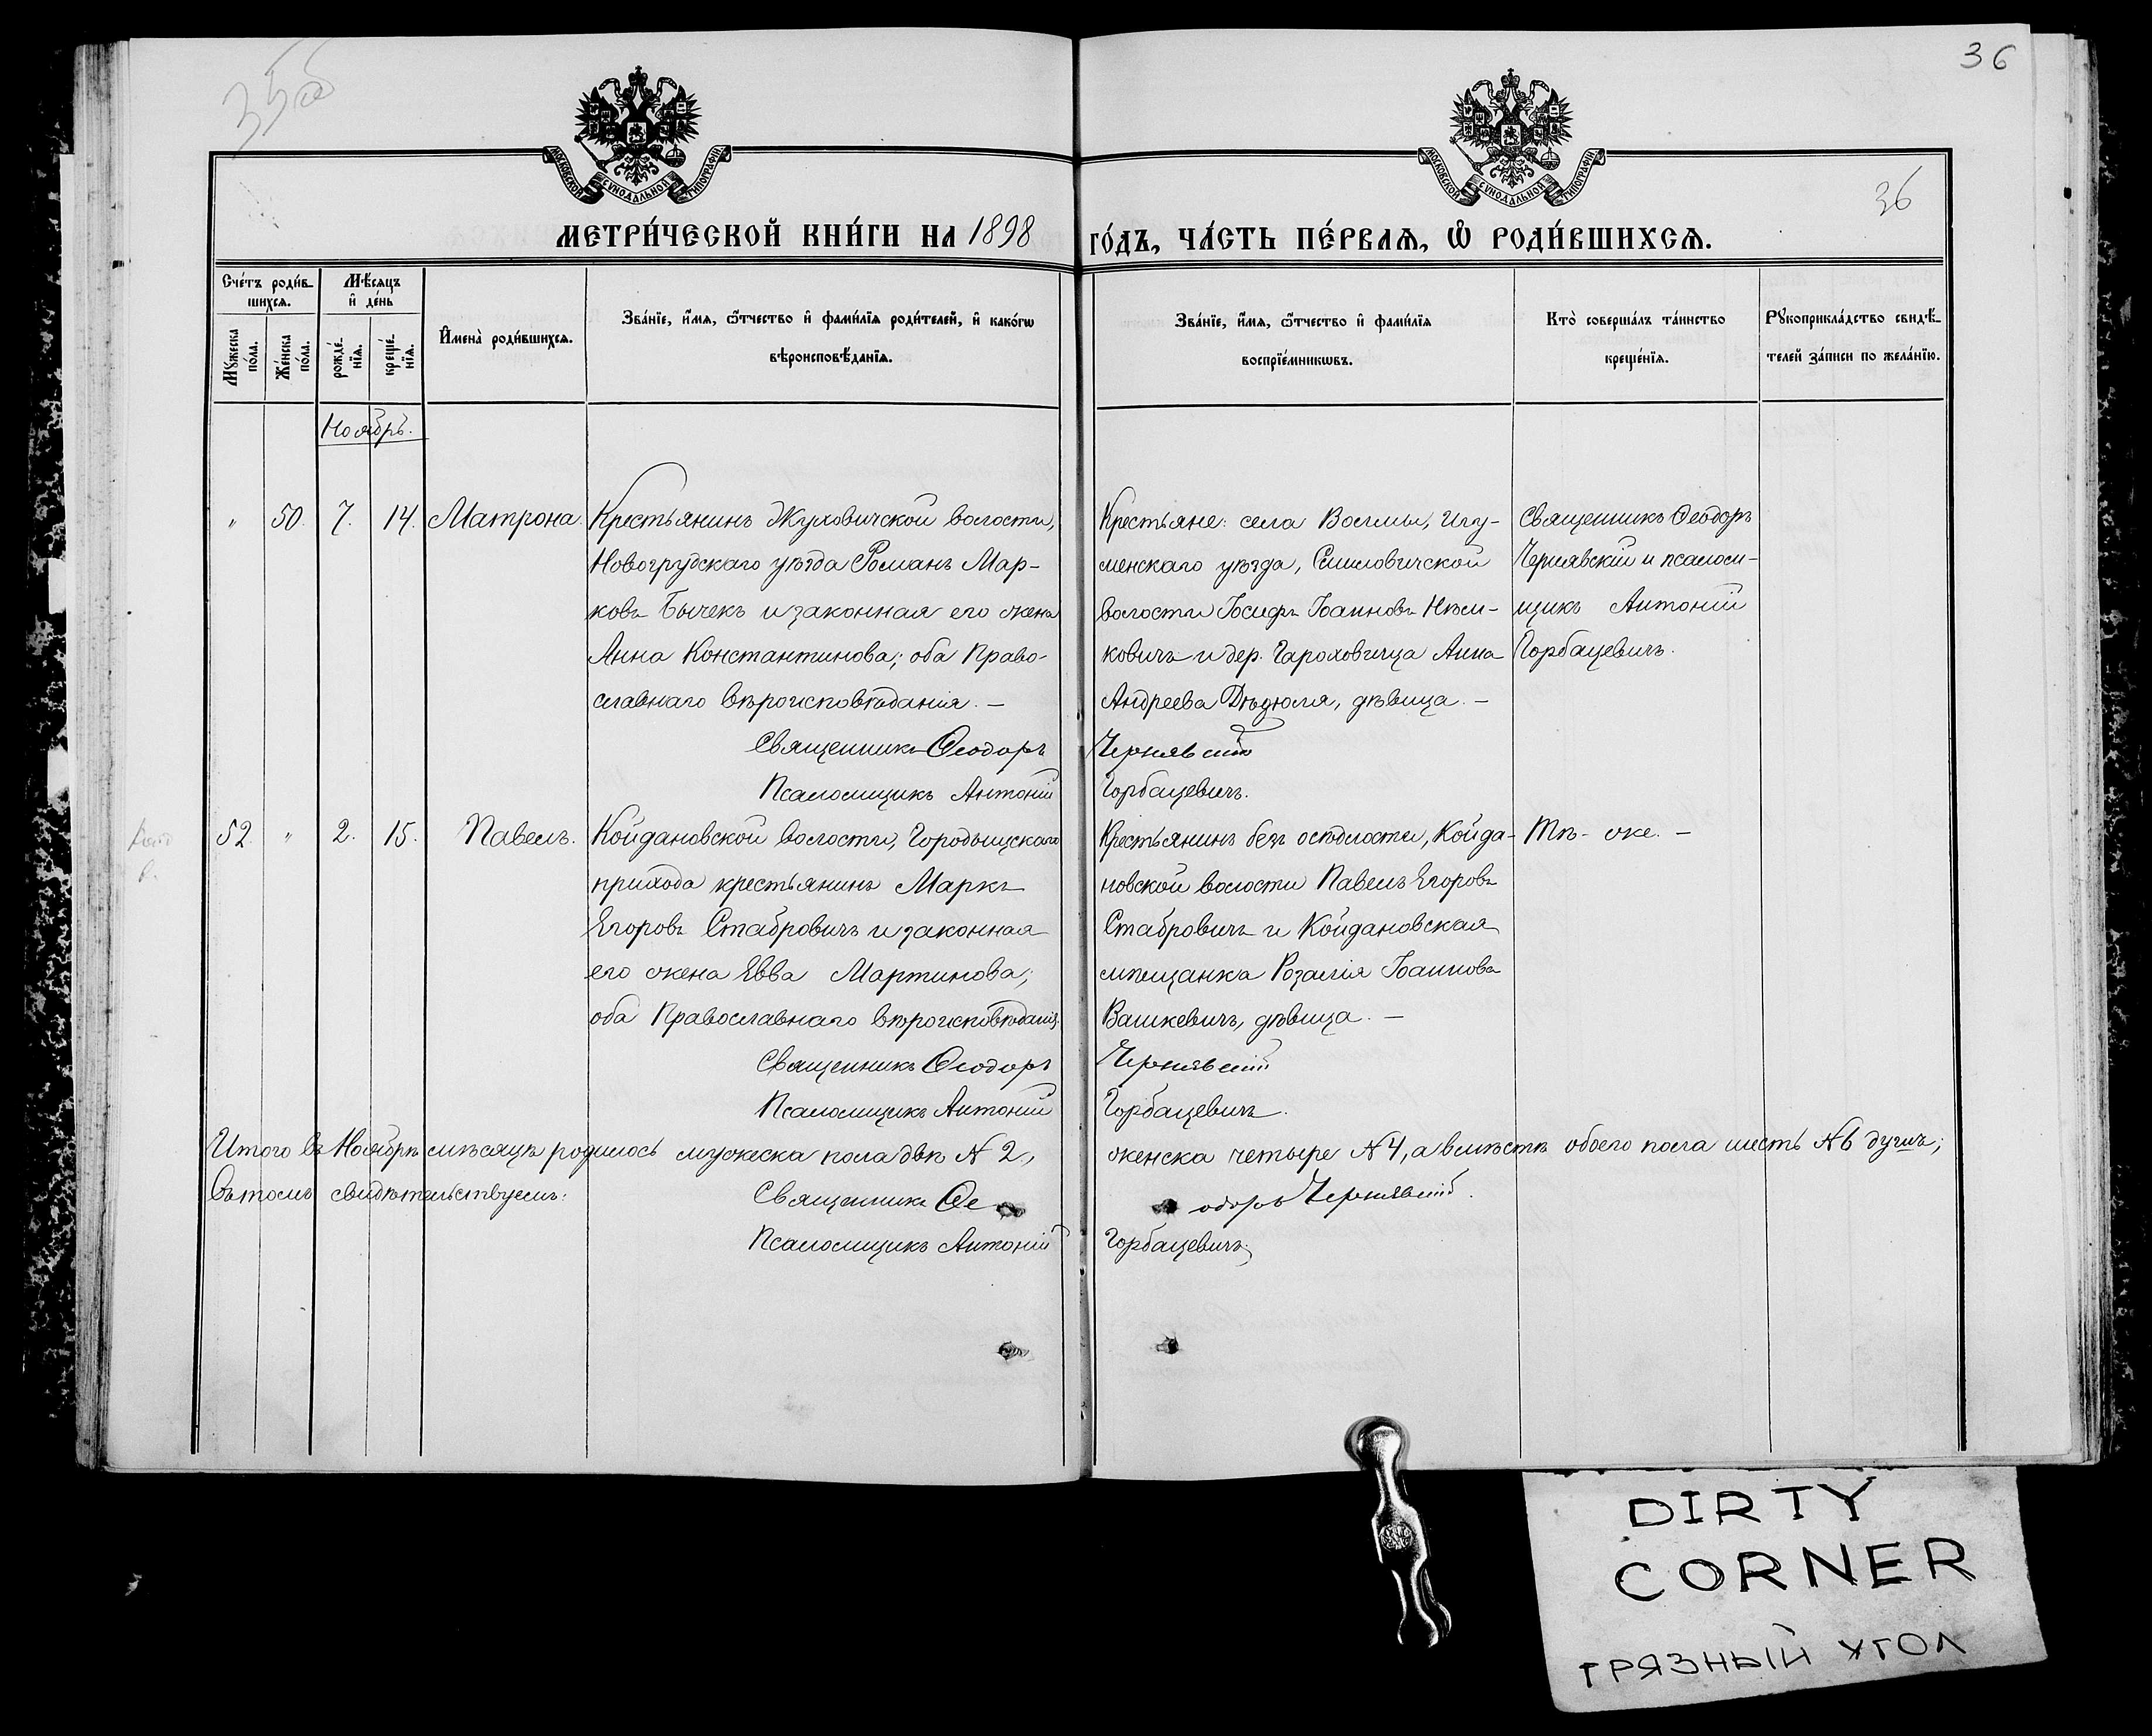 36
35об
36
МОСКОВСКОЙ СѴНОДАЛЬНОЙ ТИПОГРАФІИ
МОСКОВСКОЙ СѴНОДАЛЬНОЙ ТИПОГРАФІИ
МЕТРИ́ЧЕСКОЙ КНИ́ГИ НА 1898 ГО́ДЪ, ЧА́СТЬ ПЕ́РВАѦ, Ѽ РОДИ́ВШИХСѦ.
Сче́тъ роди́в-
шихсѧ.
Мѣ́сѧцъ
и҆ де́нь
Мꙋжеска
по́ла.
Же́нска
по́ла.
рожде́-
нїѧ.
креще́-
нїѧ.
И҆мена̀ роди́вшихсѧ.
Зва́нїе, и҆́мѧ, ѻ҆́тчество и҆ фами́лїѧ роди́телей, и҆ како́гѡ
вѣроисповѣ́данїѧ.
Зва́нїе, и҆́мѧ, ѻ҆́тчество и҆ фами́лїѧ
воспрїе́мникѡвъ.
Кто̀ соверша́лъ та́инство
креще́нїѧ.
Рꙋкоприкла́дство свидѣ́-
телей за́писи по жела́нїю.
Ноябрь.
" 50. 7. 14. Матрона.
Крестьянинъ Жуховичской волости,
Новогрудскаго уѣзда Романъ Мар-
ковъ Бычекъ и законная его жена
Анна Константинова; оба Право-
славнаго вѣроисповѣданія. —
Крестьяне: села Волмы, Игу-
менскаго уѣзда, Смиловичской
волости Іосифъ Іоанновъ
и дер. Анна
Андреева Дѣдюля, дѣвица. —
Священникъ Ѳеодоръ
Чернявскій и псалом-
щикъ Антоній
Горбацевичъ.
Священникъ Ѳеодоръ Чернявскій
Псаломщикъ Антоній Горбацевичъ.
52. " 2. 15. Павелъ.
Койдановской волости, Городыщскаго
прихода крестьянинъ Маркъ
Егоровъ Стабровичъ и законная
его жена Евва Мартинова;
оба Православнаго вѣроисповѣданія.
Крестьянинъ безъ осѣдлости, Койда-
новской волости Павелъ Егоровъ
Стабровичъ и Койдановская
мѣщанка Розалія Іоаннова
Вашкевичъ, дѣвица. —
Тѣ-же. —
Священникъ Ѳеодоръ Чернявскій
Псаломщикъ Антоній Горбацевичъ.
Итого въ Ноябрѣ мѣсяцѣ родилось мужеска пола двѣ № 2, женска четыре № 4, а вмѣстѣ обоего пола шесть № 6 душъ;
въ томъ свидѣтельствуемъ: Священникъ Ѳеодоръ Чернявскій.
Псаломщикъ Антоній Горбацевичъ
DIRTY
CORNER
ГРЯЗНЫЙ УГОЛ